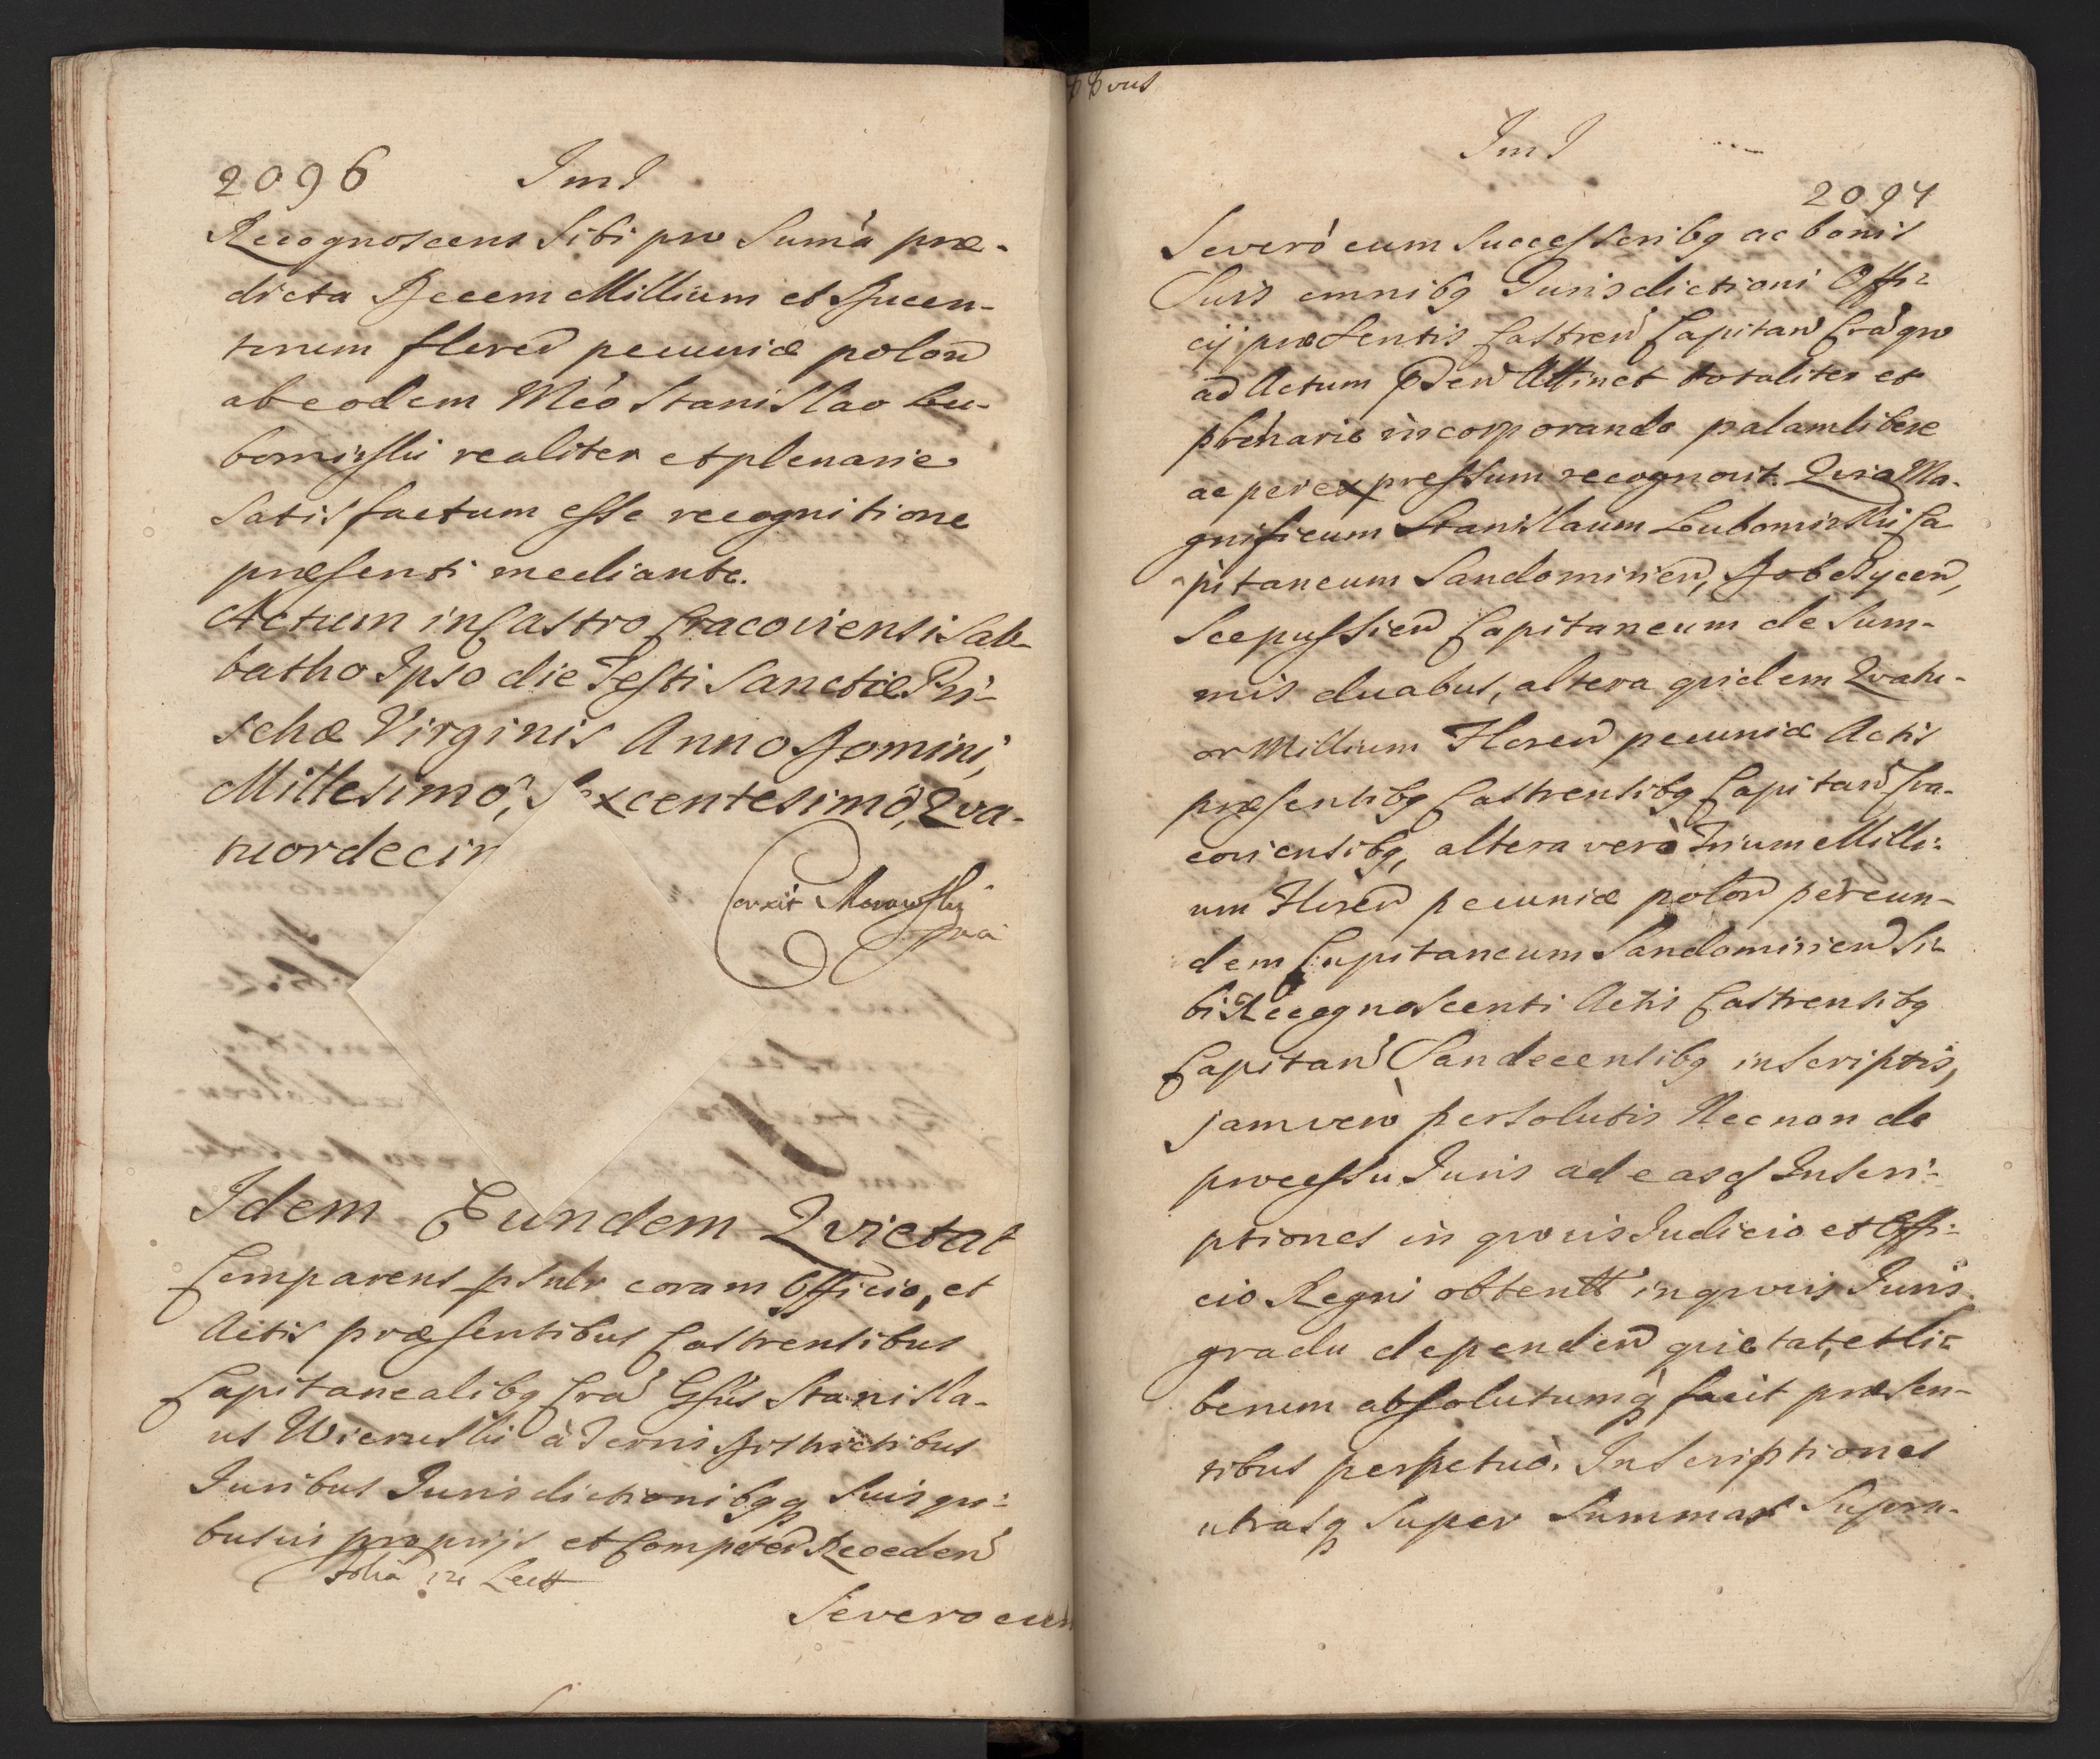 2096 JmJ
Recognoscens Sibi pro Suma præ-
dicta Decem Millium et Ducen-
torum floren pecuniæ polon
ab eodem Mco Stanislao Lu-
bomirski realiter et plenarie
satisfactum esse recognitione
præsenti mediante.
Actum in Castro Cracoviensi Sab-
batho Ipso die Festi Sanctæ Pri-
schæ Virginis Anno Domini,
Millesimo, Sexcentesimo, Qva-
tuordecim
Corexit Morawski
mp
Idem Eundem Qvietat
Comparens psnlr coram Officio, et
Actis præsentibus Castrensibus
Capitanealibq Cra Gsus Stanisla-
us Wieruski à Terris Districtibus
Juribus Jurisdictionibqq Suis qvi-
busvis proprijs et Competen Receden
Severo cum
JmJ
2097
Severo cum Successoribq ac bonis
Suis omnibq Jurisdictioni Offi-
cij præsentis Castren Capitan Cra qvo
ad Actum Pden Attinet totaliter et
plenarie incorporando palam libere
ac per expressum recognovit. Qvia Ma-
gnificum Stanislaum Lubomirski Ca
pitaneum Sandomirien, Dobczycen,
Scepussien Capitaneum de Sum-
mis duabus, altera qvidem Qvatu-
or Millium Floren pecuniæ Actis
præsentibq Castrensibq Capitan Cra-
coviensibq, altera verò Trium Milli-
um Floren pecuniæ polon per eun-
dem Capitaneum Sandomirien Si-
bi Recognoscenti Actis Castrensibq
Capitan Sandecensibq inscriptis,
jam vero persolutis Nec non de
processu Juris ad easq Inscri-
ptiones in qvovis Judicio et Offi-
cio Regni obtentt in qvovis Juris
gradu dependen qvietat, et li-
berum absolutumq facit præsen-
tibus perpetuò. Inscriptiones
utrasq super Summas Supra-